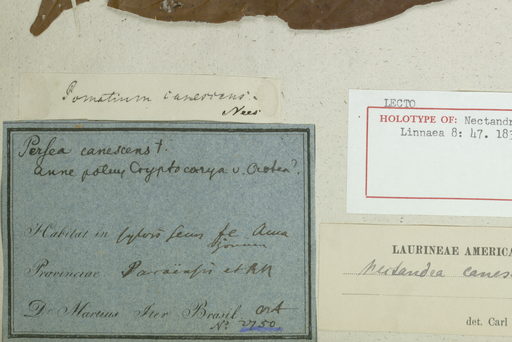 Pomatium canescens.
Nees
Persea canescens †.
anne potius Cryptocarya v. Ocotea?
Habitat in sylvis
Provinciae Paraënsis et R N
Dr Martius Iter Brasil
No 2750
LECTO
HOLOTYPE OF: Nectandr
Linnaea 8: 47. 183
LAURINEAE AMERICA
Nectandra canes
det. Carl